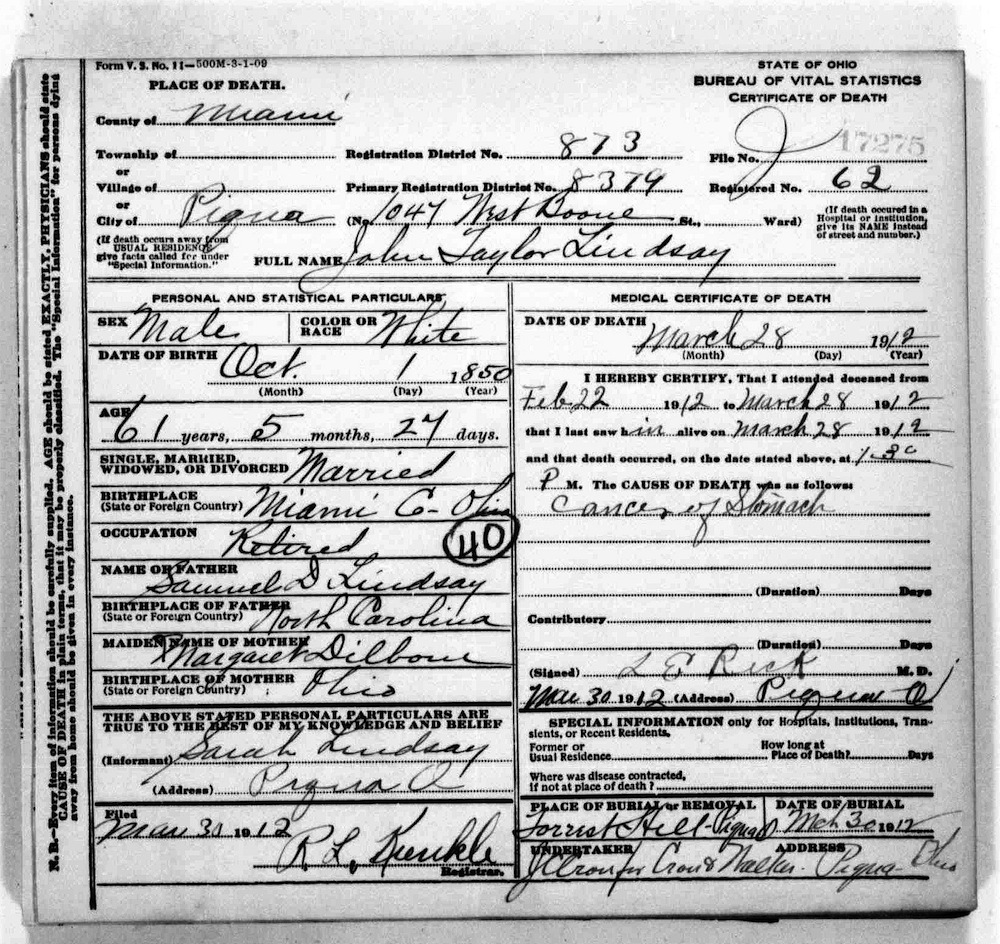 Form V. S. No. 11—500M-3-1-09
PLACE OF DEATH.
STATE OF OHIO
BUREAU OF VITAL STATISTICS
CERTIFICATE OF DEATH
County of Miami
Township of
Registration District No. 873
File No. 17275
or
Village of
Primary Registration District No. 8379
Registered No. 62
or
City of Piqua
(No. 1047 West Boone St., Ward)
(If death occured in a Hospital or Institution, give its NAME instead of street and number.)
(If death occurs away from USUAL RESIDENCE give facts called for under "Special Information.")
FULL NAME John Taylor Lindsay
PERSONAL AND STATISTICAL PARTICULARS
SEX Male
COLOR OR RACE White
DATE OF BIRTH Oct. 1 1850
(Month) (Day) (Year)
AGE
61 years, 5 months, 27 days.
SINGLE, MARRIED, WIDOWED, OR DIVORCED Married
BIRTHPLACE
(State or Foreign Country) Miami C- Ohio
OCCUPATION Retired
40
NAME OF FATHER
Samuel D Lindsay
BIRTHPLACE OF FATHER
(State or Foreign Country) North Carolina
MAIDEN NAME OF MOTHER
Margaret Dilbone
BIRTHPLACE OF MOTHER
(State or Foreign Country) Ohio
THE ABOVE STATED PERSONAL PARTICULARS ARE
TRUE TO THE BEST OF MY KNOWLEDGE AND BELIEF
(Informant) Sarah Lindsay
(Address) Piqua O
Filed
Mar 30 1912
R L. Kunkle
Registrar.
MEDICAL CERTIFICATE OF DEATH
DATE OF DEATH
March 28 1912
(Month) (Day) (Year)
I HEREBY CERTIFY, That I attended deceased from
Feb 22 1912 to March 28 1912
that I last saw him alive on March 28 1912
and that death occurred, on the date stated above, at 1-30
P M. The CAUSE OF DEATH was as follows:
Cancer of Stomach
(Duration) Days
Contributory
(Duration) Days
(Signed) L E Reck M. D.
Mar 30 1912 (Address) Piqua O
SPECIAL INFORMATION only for Hospitals, Institutions, Transients, or Recent Residents,
Former or
Usual Residence
How long at
Place of Death? Days
Where was disease contracted,
If not at place of death?
PLACE OF BURIAL or REMOVAL
Forrest Hill - Piqua O
DATE OF BURIAL
Mch 30 1912
UNDERTAKER
ADDRESS
Walker. Piqua- Ohio
N. B.—Every item of information should be carefully supplied. AGE should be stated EXACTLY, PHYSICIANS should state
CAUSE OF DEATH in plain terms, that it may be properly classified. The "Special Information" for persons dying
away from home should be given in every instance.